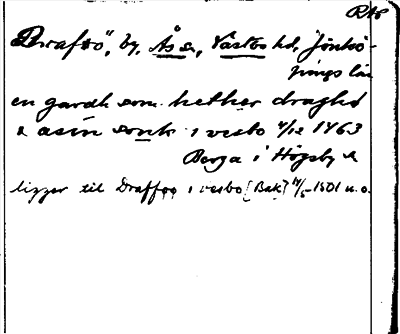 RAP
"Drafsö", by, Ås sn, Västbo hd, Jönkö-
pings län
en gardh som hether draghö
i asin sonk i vesto 4/12 1463
Berga i Högsby sn
ligger til Drafföö i vesbo [Bak] 1501 u.o.